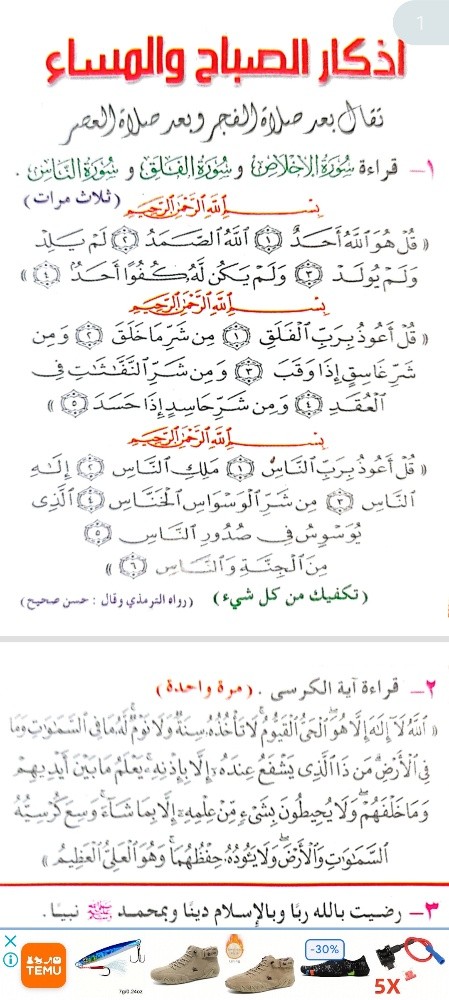 1
اذكار الصباح والمساء
تقال بعد صلاة الفجر وبعد صلاة العصر
١- قراءة سُورَةُ الإِخْلَاصِ و سُورَةُ الْفَلَقِ و سُورَةُ النَّاسِ .
بِسْمِ اللَّهِ الرَّحْمَٰنِ الرَّحِيمِ (ثلاث مرات)
« قُلْ هُوَ اللَّهُ أَحَدٌ ١ اللَّهُ الصَّمَدُ ٢ لَمْ يَلِدْ
وَلَمْ يُولَدْ ٣ وَلَمْ يَكُن لَّهُ كُفُوًا أَحَدٌ ٤ »
بِسْمِ اللَّهِ الرَّحْمَٰنِ الرَّحِيمِ
« قُلْ أَعُوذُ بِرَبِّ الْفَلَقِ ١ مِن شَرِّ مَا خَلَقَ ٢ وَمِن
شَرِّ غَاسِقٍ إِذَا وَقَبَ ٣ وَمِن شَرِّ النَّفَّاثَاتِ فِي
الْعُقَدِ ٤ وَمِن شَرِّ حَاسِدٍ إِذَا حَسَدَ ٥ »
بِسْمِ اللَّهِ الرَّحْمَٰنِ الرَّحِيمِ
« قُلْ أَعُوذُ بِرَبِّ النَّاسِ ١ مَلِكِ النَّاسِ ٢ إِلَٰهِ
النَّاسِ ٣ مِن شَرِّ الْوَسْوَاسِ الْخَنَّاسِ ٤ الَّذِي
يُوَسْوِسُ فِي صُدُورِ النَّاسِ ٥
مِنَ الْجِنَّةِ وَالنَّاسِ ٦ »
(تكفيك من كل شيء) (رواه الترمذي وقال : حسن صحيح)
٢- قراءة آية الكرسى . (مرة واحدة)
« اللَّهُ لَا إِلَٰهَ إِلَّا هُوَ الْحَيُّ الْقَيُّومُ لَا تَأْخُذُهُ سِنَةٌ وَلَا نَوْمٌ لَّهُ مَا فِي السَّمَاوَاتِ وَمَا
فِي الْأَرْضِ مَن ذَا الَّذِي يَشْفَعُ عِندَهُ إِلَّا بِإِذْنِهِ يَعْلَمُ مَا بَيْنَ أَيْدِيهِمْ
وَمَا خَلْفَهُمْ وَلَا يُحِيطُونَ بِشَيْءٍ مِّنْ عِلْمِهِ إِلَّا بِمَا شَاءَ وَسِعَ كُرْسِيُّهُ
السَّمَاوَاتِ وَالْأَرْضَ وَلَا يَئُودُهُ حِفْظُهُمَا وَهُوَ الْعَلِيُّ الْعَظِيمُ »
٣- رضيت بالله ربا وبالإسلام دينًا وبمحمد ﷺ نبيًا .
TEMU
7g/0.24oz
-30%
5X